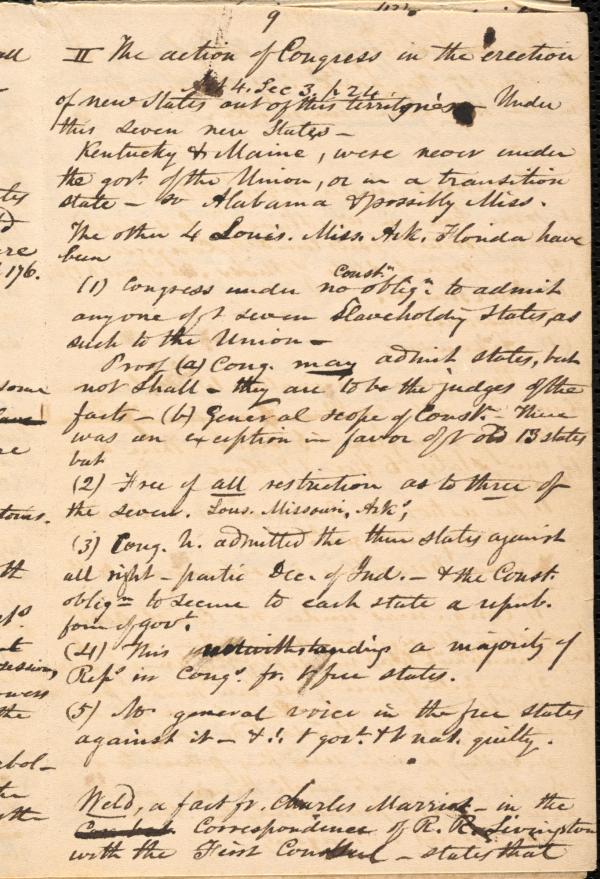 9
II The action of Congress in the erection
Art 4. Sec 3. p 24.
of new States out of this territories Under
this seven new States –
Kentucky & Maine, were never under
the govt. of the Union, or in a transition
state – so Alabama & possibly Miss.
The other 4 Louis. Miss. Ark. Florida have
been
(1) Congress under no Constn. oblign. to admit
any one of t seven Slaveholdg States, as
such to the Union –
Proof (a) Cong. may admit states, but
not shall – they are to be the judges of the
facts – (b) General scope of Const. There
was an exception in favor of t old 13 states
but
(2) Free of all restriction as to three of
the seven. Lous. Missouri, Arks,
(3) Cong. h. admitted the three states against
all right – partic Dec. of Ind. – & the Const.
oblign to secure to each state a repub.
form of govt.
(4) This notwithstanding a majority of
Reps in Congs. fr. t free states.
(5) No general voice in the free states
against it – & t govt. & t nat. guilty.
Weld, a fact fr. Charles Marriot – in the
Correspondence of R. R. Livingston
with the First Consul – states that